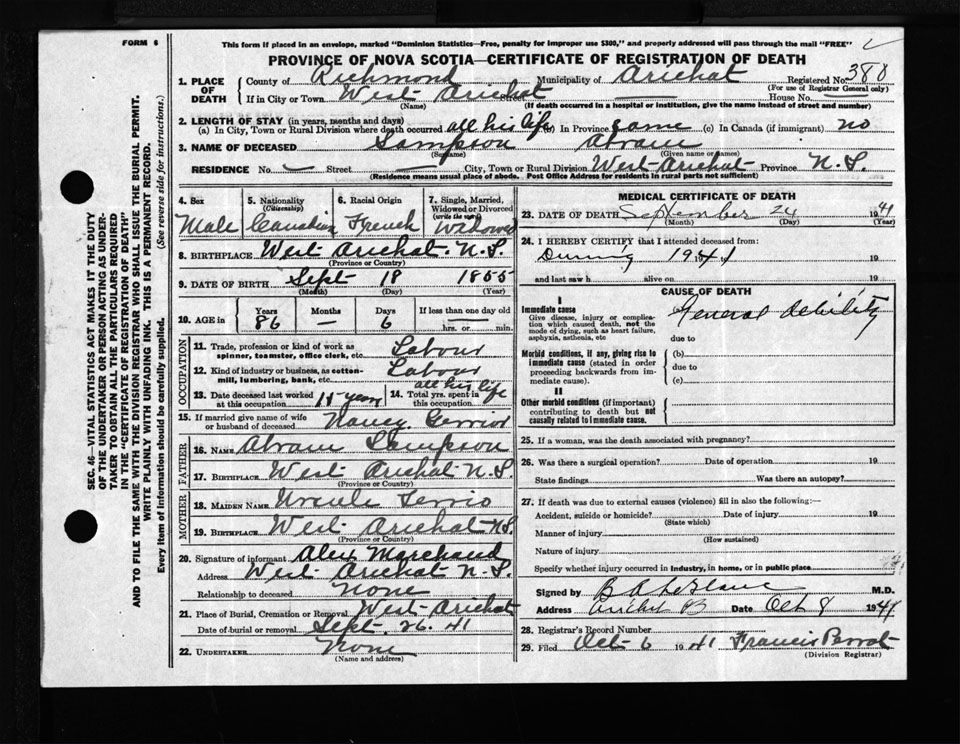 FORM 6
This form if placed in an envelope, marked "Dominion Statistics—Free, penalty for improper use $300," and properly addressed will pass through the mail "FREE"
PROVINCE OF NOVA SCOTIA—CERTIFICATE OF REGISTRATION OF DEATH
1. PLACE OF DEATH County of Richmond Municipality of Arichat Registered No. 388
(For use of Registrar General only)
If in City or Town West Arichat Street House No.
(Name) (If death occurred in a hospital or institution, give the name instead of street and number)
2. LENGTH OF STAY (in years, months and days)
(a) In City, Town or Rural Division where death occurred all his life (b) In Province same (c) In Canada (if immigrant) no
3. NAME OF DECEASED Sampson Abram
(Surname) (Given name or names)
RESIDENCE No. Street City, Town or Rural Division West Arichat Province N.S.
(Residence means usual place of abode. Post Office Address for residents in rural parts not sufficient)
4. Sex Male
5. Nationality (Citizenship) Canadian
6. Racial Origin French
7. Single, Married, Widowed or Divorced (write the word) Widowed
8. BIRTHPLACE West Arichat N.S.
(Province or Country)
9. DATE OF BIRTH Sept 18 1855
(Month) (Day) (Year)
10. AGE in Years 86 Months — Days 6 If less than one day old hrs. or min.
OCCUPATION
11. Trade, profession or kind of work as spinner, teamster, office clerk, etc. Labour
12. Kind of industry or business, as cotton-mill, lumbering, bank, etc. Labour
13. Date deceased last worked at this occupation 15 years
14. Total yrs. spent in this occupation all his life
15. If married give name of wife or husband of deceased Nancy Gerrior
FATHER
16. NAME Abram Sampson
17. BIRTHPLACE West Arichat N.S.
(Province or Country)
MOTHER
18. MAIDEN NAME Ursule Terrio
19. BIRTHPLACE West Arichat N.S.
(Province or Country)
20. Signature of informant Alex Marchand
Address West Arichat N.S.
Relationship to deceased None
21. Place of Burial, Cremation or Removal West Arichat
Date of burial or removal Sept. 26. 41
22. UNDERTAKER None
(Name and address)
MEDICAL CERTIFICATE OF DEATH
23. DATE OF DEATH September 24 1941
(Month) (Day)
24. I HEREBY CERTIFY that I attended deceased from:
During 1941 19
and last saw h alive on 19
CAUSE OF DEATH
I
Immediate cause
Give disease, injury or complication which caused death, not the mode of dying, such as heart failure, asphyxia, asthenia, etc
General debility
due to
Morbid conditions, if any, giving rise to immediate cause (stated in order proceeding backwards from immediate cause).
(b)
due to
(c)
II
Other morbid conditions (if important) contributing to death but not causally related to immediate cause.
25. If a woman, was the death associated with pregnancy?
26. Was there a surgical operation? Date of operation 19
State findings Was there an autopsy?
27. If death was due to external causes (violence) fill in also the following:—
Accident, suicide or homicide? Date of injury 19
(State which)
Manner of injury
(How sustained)
Nature of injury
Specify whether injury occurred in industry, in home, or in public place
Signed by B A LeBlanc M.D.
Address Arichat CB Date Oct 8 1941
28. Registrar's Record Number
29. Filed Oct 6 1941 Francis Perrot
(Division Registrar)
SEC. 46—VITAL STATISTICS ACT MAKES IT THE DUTY
OF THE UNDERTAKER OR PERSON ACTING AS UNDER-
TAKER TO OBTAIN ALL THE PARTICULARS REQUIRED
IN THE "CERTIFICATE OF REGISTRATION OF DEATH"
AND TO FILE THE SAME WITH THE DIVISION REGISTRAR WHO SHALL ISSUE THE BURIAL PERMIT.
WRITE PLAINLY WITH UNFADING INK. THIS IS A PERMANENT RECORD.
Every item of information should be carefully supplied. (See reverse side for instructions.)